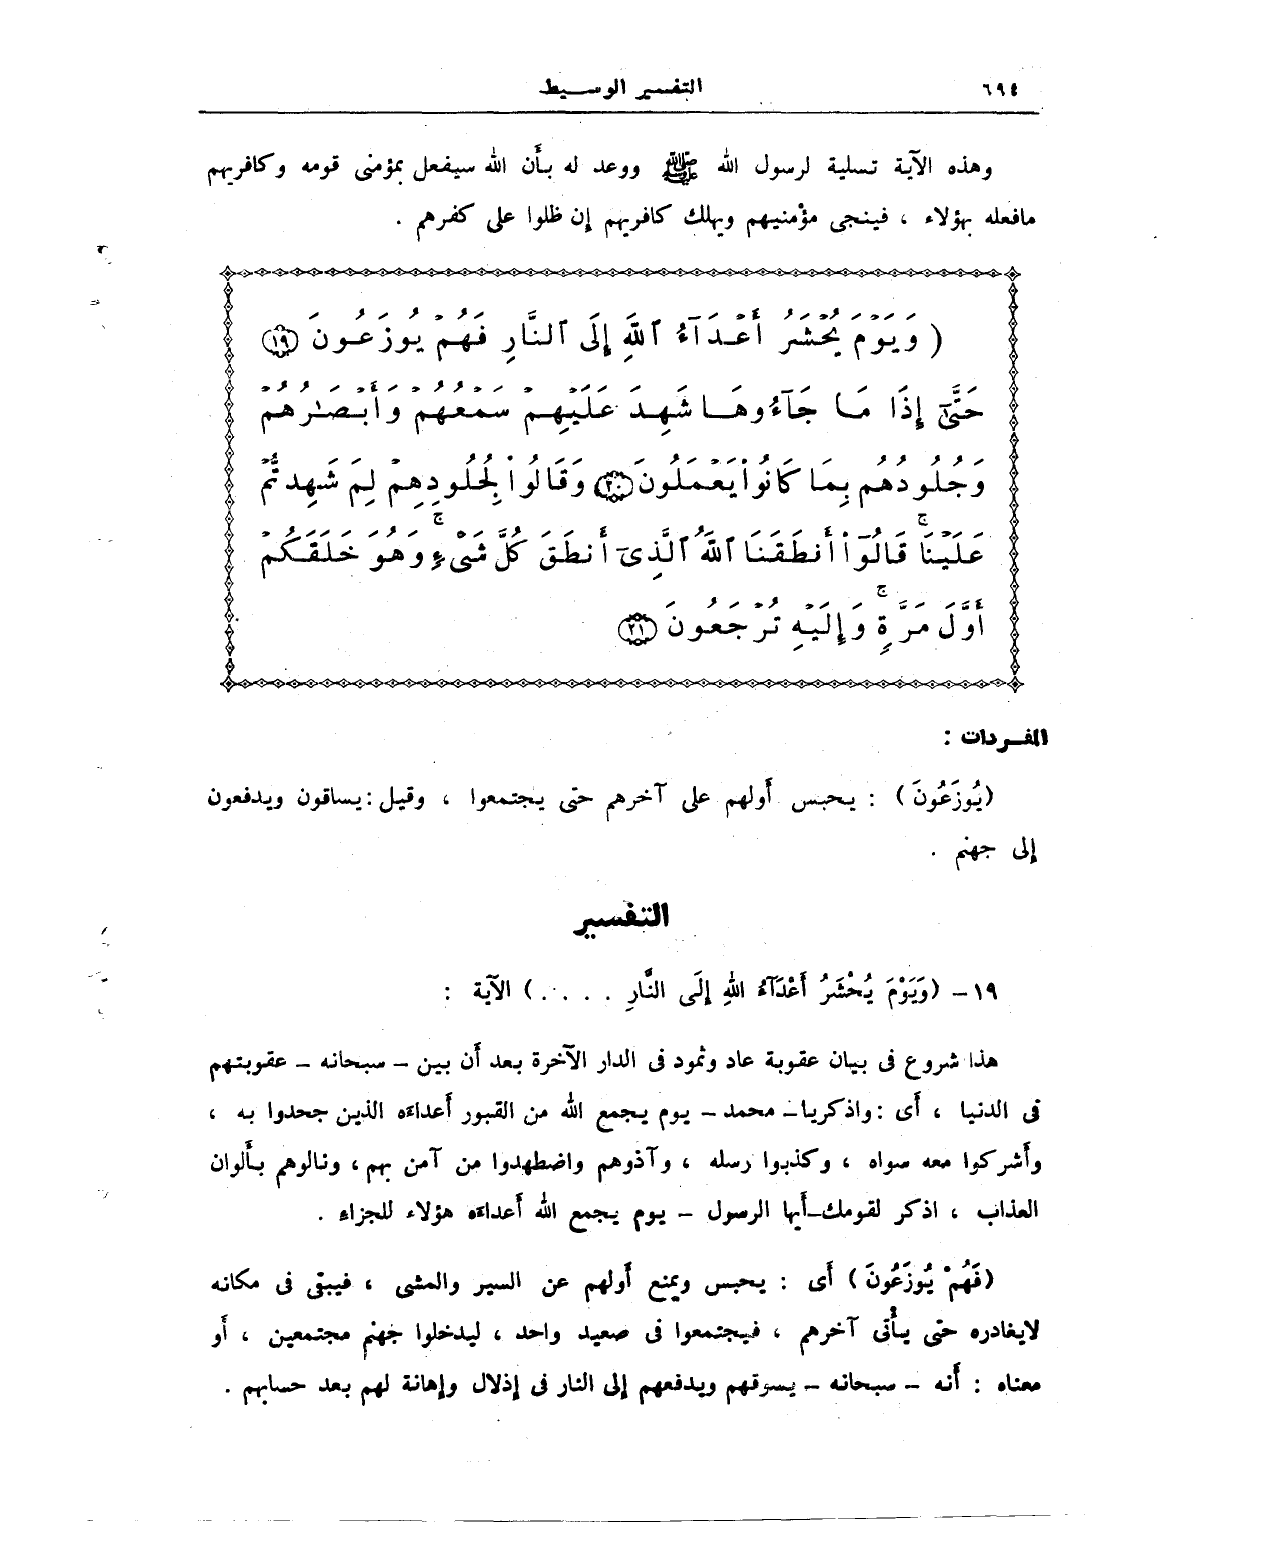 ٦٩٤ التفسير الوسيط
وهذه الآية تسلية لرسول الله ﷺ ووعد له بأن الله سيفعل بمؤمنى قومه وكافريهم
مافعله بهؤلاء ، فينجى مؤمنيهم ويهلك كافريهم إن ظلوا على كفرهم .
( وَيَوْمَ يُحْشَرُ أَعْدَآءُ ٱللَّهِ إِلَى ٱلنَّارِ فَهُمْ يُوزَعُونَ ﴿١٩﴾
حَتَّىٰٓ إِذَا مَا جَآءُوهَا شَهِدَ عَلَيْهِمْ سَمْعُهُمْ وَأَبْصَٰرُهُمْ
وَجُلُودُهُم بِمَا كَانُوا۟ يَعْمَلُونَ ﴿٢٠﴾ وَقَالُوا۟ لِجُلُودِهِمْ لِمَ شَهِدتُّمْ
عَلَيْنَا ۖ قَالُوٓا۟ أَنطَقَنَا ٱللَّهُ ٱلَّذِىٓ أَنطَقَ كُلَّ شَىْءٍ ۚ وَهُوَ خَلَقَكُمْ
أَوَّلَ مَرَّةٍ ۚ وَإِلَيْهِ تُرْجَعُونَ ﴿٢١﴾
المفردات :
(يُوزَعُونَ) : يحبس أولهم على آخرهم حتى يجتمعوا ، وقيل : يساقون ويدفعون
إلى جهنم .
التفسير
١٩ – (وَيَوْمَ يُحْشَرُ أَعْدَآءُ اللهِ إِلَى النَّارِ . . . .) الآية :
هذا شروع فى بيان عقوبة عاد وثمود فى الدار الآخرة بعد أن بين – سبحانه – عقوبتهم
فى الدنيا ، أى : واذكريا – محمد – يوم يجمع الله من القبور أعداءه الذين جحدوا به ،
وأشركوا معه سواه ، وكذبوا رسله ، وآذوهم واضطهدوا من آمن بهم ، ونالوهم بألوان
العذاب ، اذكر لقومك – أيها الرسول – يوم يجمع الله أعداءه هؤلاء للجزاء .
(فَهُمْ يُوزَعُونَ) أى : يحبس ويمنع أولهم عن السير والمشى ، فيبقى فى مكانه
لايغادره حتى يأتى آخرهم ، فيجتمعوا فى صعيد واحد ، ليدخلوا جهنم مجتمعين ، أو
معناه : أنه – سبحانه – يسوقهم ويدفعهم إلى النار فى إذلال وإهانة لهم بعد حسابهم .